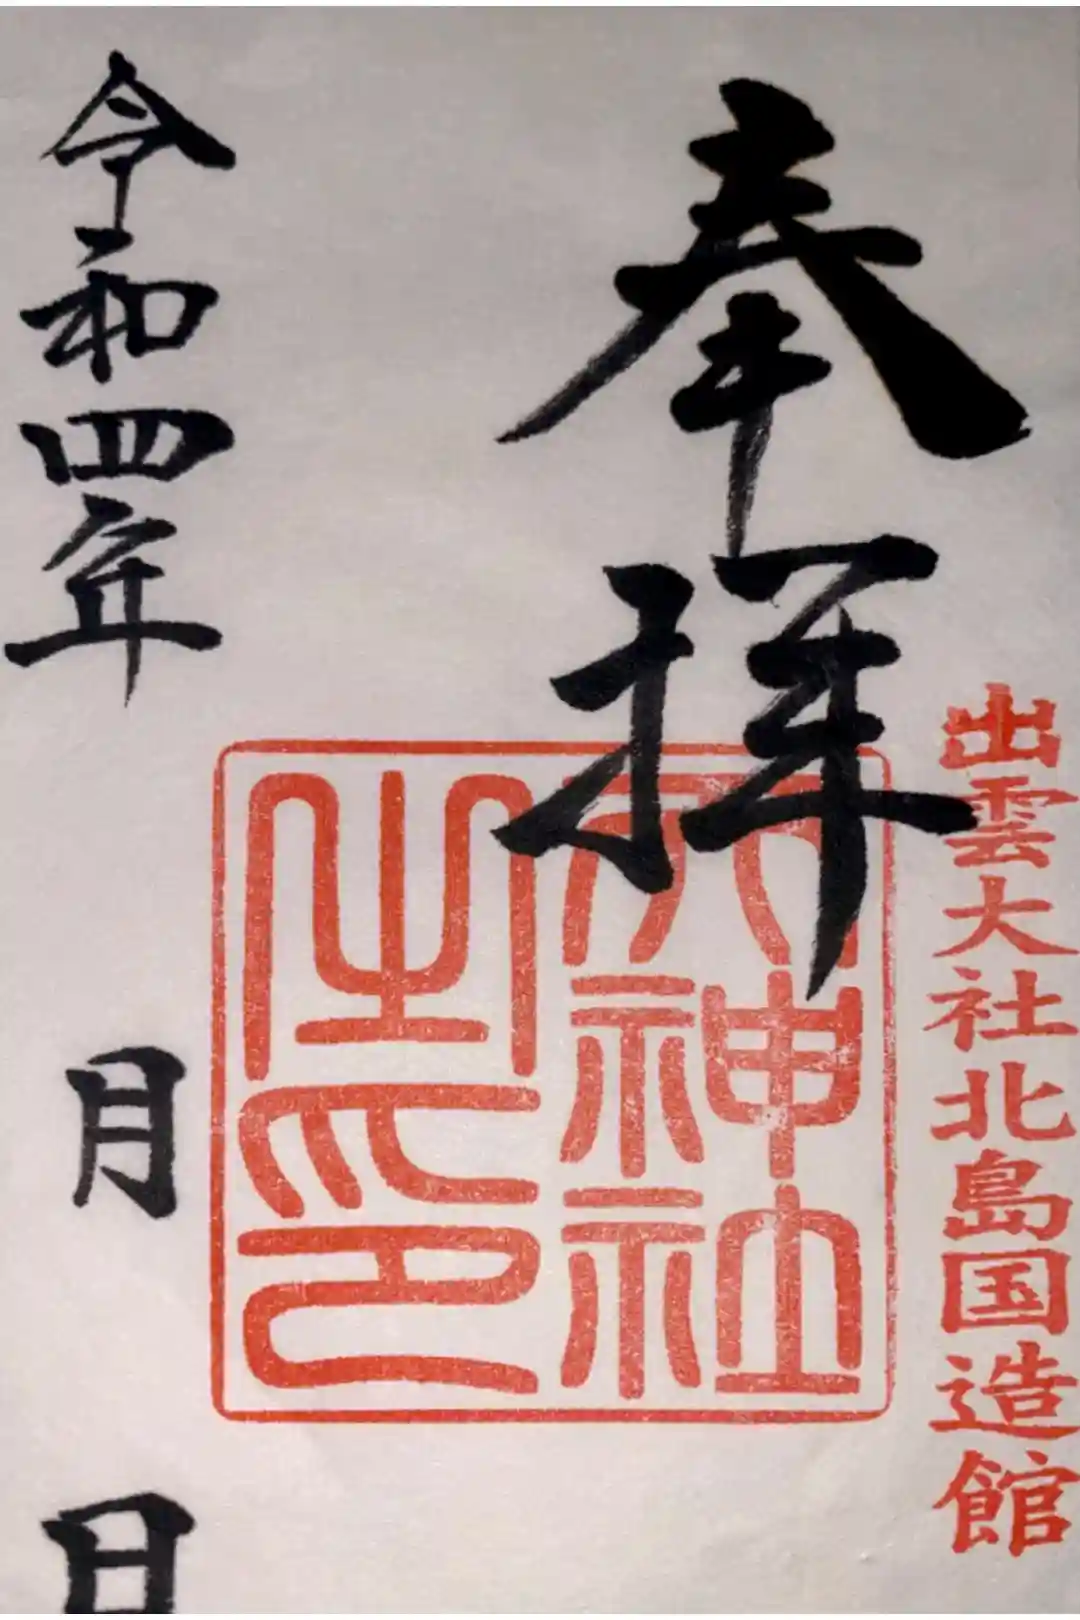 出雲大社北島国造館
奉拝
天神社之印
令和四年
月
日